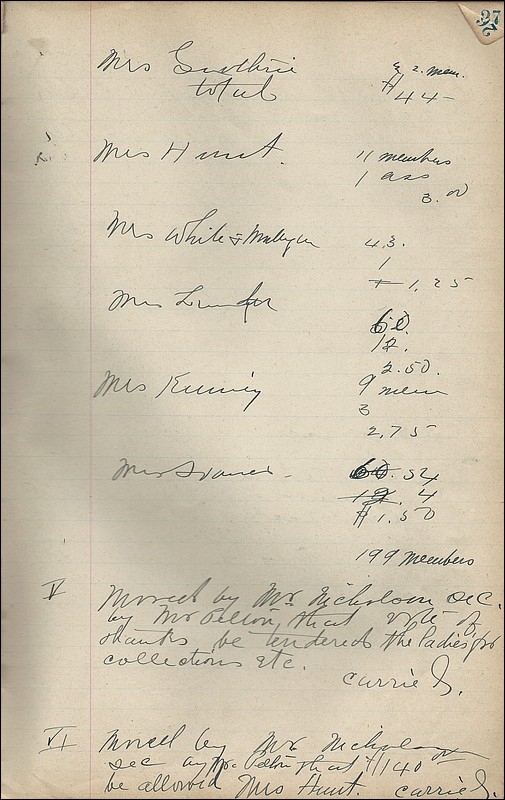 27
Mrs Guthrie 2. mem.
total 44-
Mrs Hunt. 11 members
1 ass
3.00
Mrs White & 43.
1
1,25
Mrs
12.
2.50.
Mrs 9 mem
3
2,75
Mrs 60. 54
12. 4
$1.50
199 members
V Moved by Mr Nicholson sec.
by Mr that vote of
thanks be tendered the ladies for
collections etc.
carried.
VI Moved by Mr Nicholson
sec by Mr that $1.40
be allowed Mrs Hunt. carried.